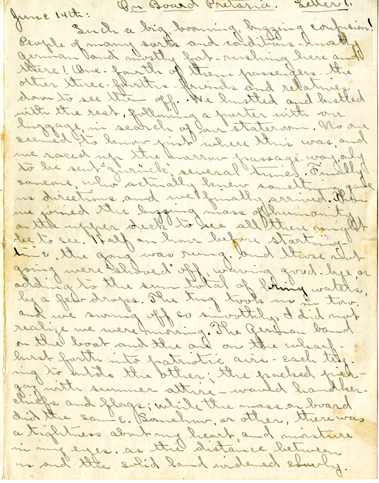 On Board Pretoria. Letter 1.
June 14th:
Such a big booming, buzzing confusion!
People of many sorts and conditions - mostly
German and mostly fat - rushing here and
there! One-fourth of them passengers - the
other three-fourths friends and relatives
down to see them off. We hustled and bustled
with the rest, following a porter with our
luggage, in search of our stateroom. No one
seemed to know just where it was, and
we raced up the narrow passage way only
to be sent back several times. Finally
someone, who actually knew something, gave
us directions and we finally arrived. Then
we joined the mass of humanity
on the upper deck to see all there might
be to see. Half an hour before starting
time the gong was rung, and those not
going were shoved off, waving good-bye or
adding to the sum total of briny waters,
by a few drops. The tug took us in tow,
and we swung off so smoothly, I did not
realize we were moving. The German band
on the boat and the one on the wharf
burst forth into patriotic airs - each try-
ing to outdo the other; the packed pier -
gay with summer attire - waved handker-
chiefs and flags; while the mass on board
did the same. Somehow, or other, there was
a tightness about my heart, and moisture
in my eyes, as the distance between
us and the solid land widened slowly.